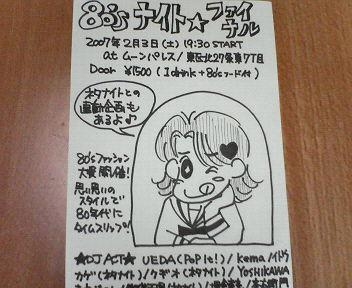 80's ナイト★ファイナル
2007年2月3日(土) 19:30 START
at ムーンパレス/東区北27条東7丁目
Door ¥1500 (1drink+80'sフード付)
ネタナイトとの
連動企画も
あるよ♪
80'sファッション
大賞開催!
思い思いの
スタイルで
80年代に
タイムスリップ!
★DJ ACT★ UEDA(PoPle!)/Kema/イトウ
カゲ(ネタナイト)/ケギオ(ネタナイト)/YOSHIKAWA